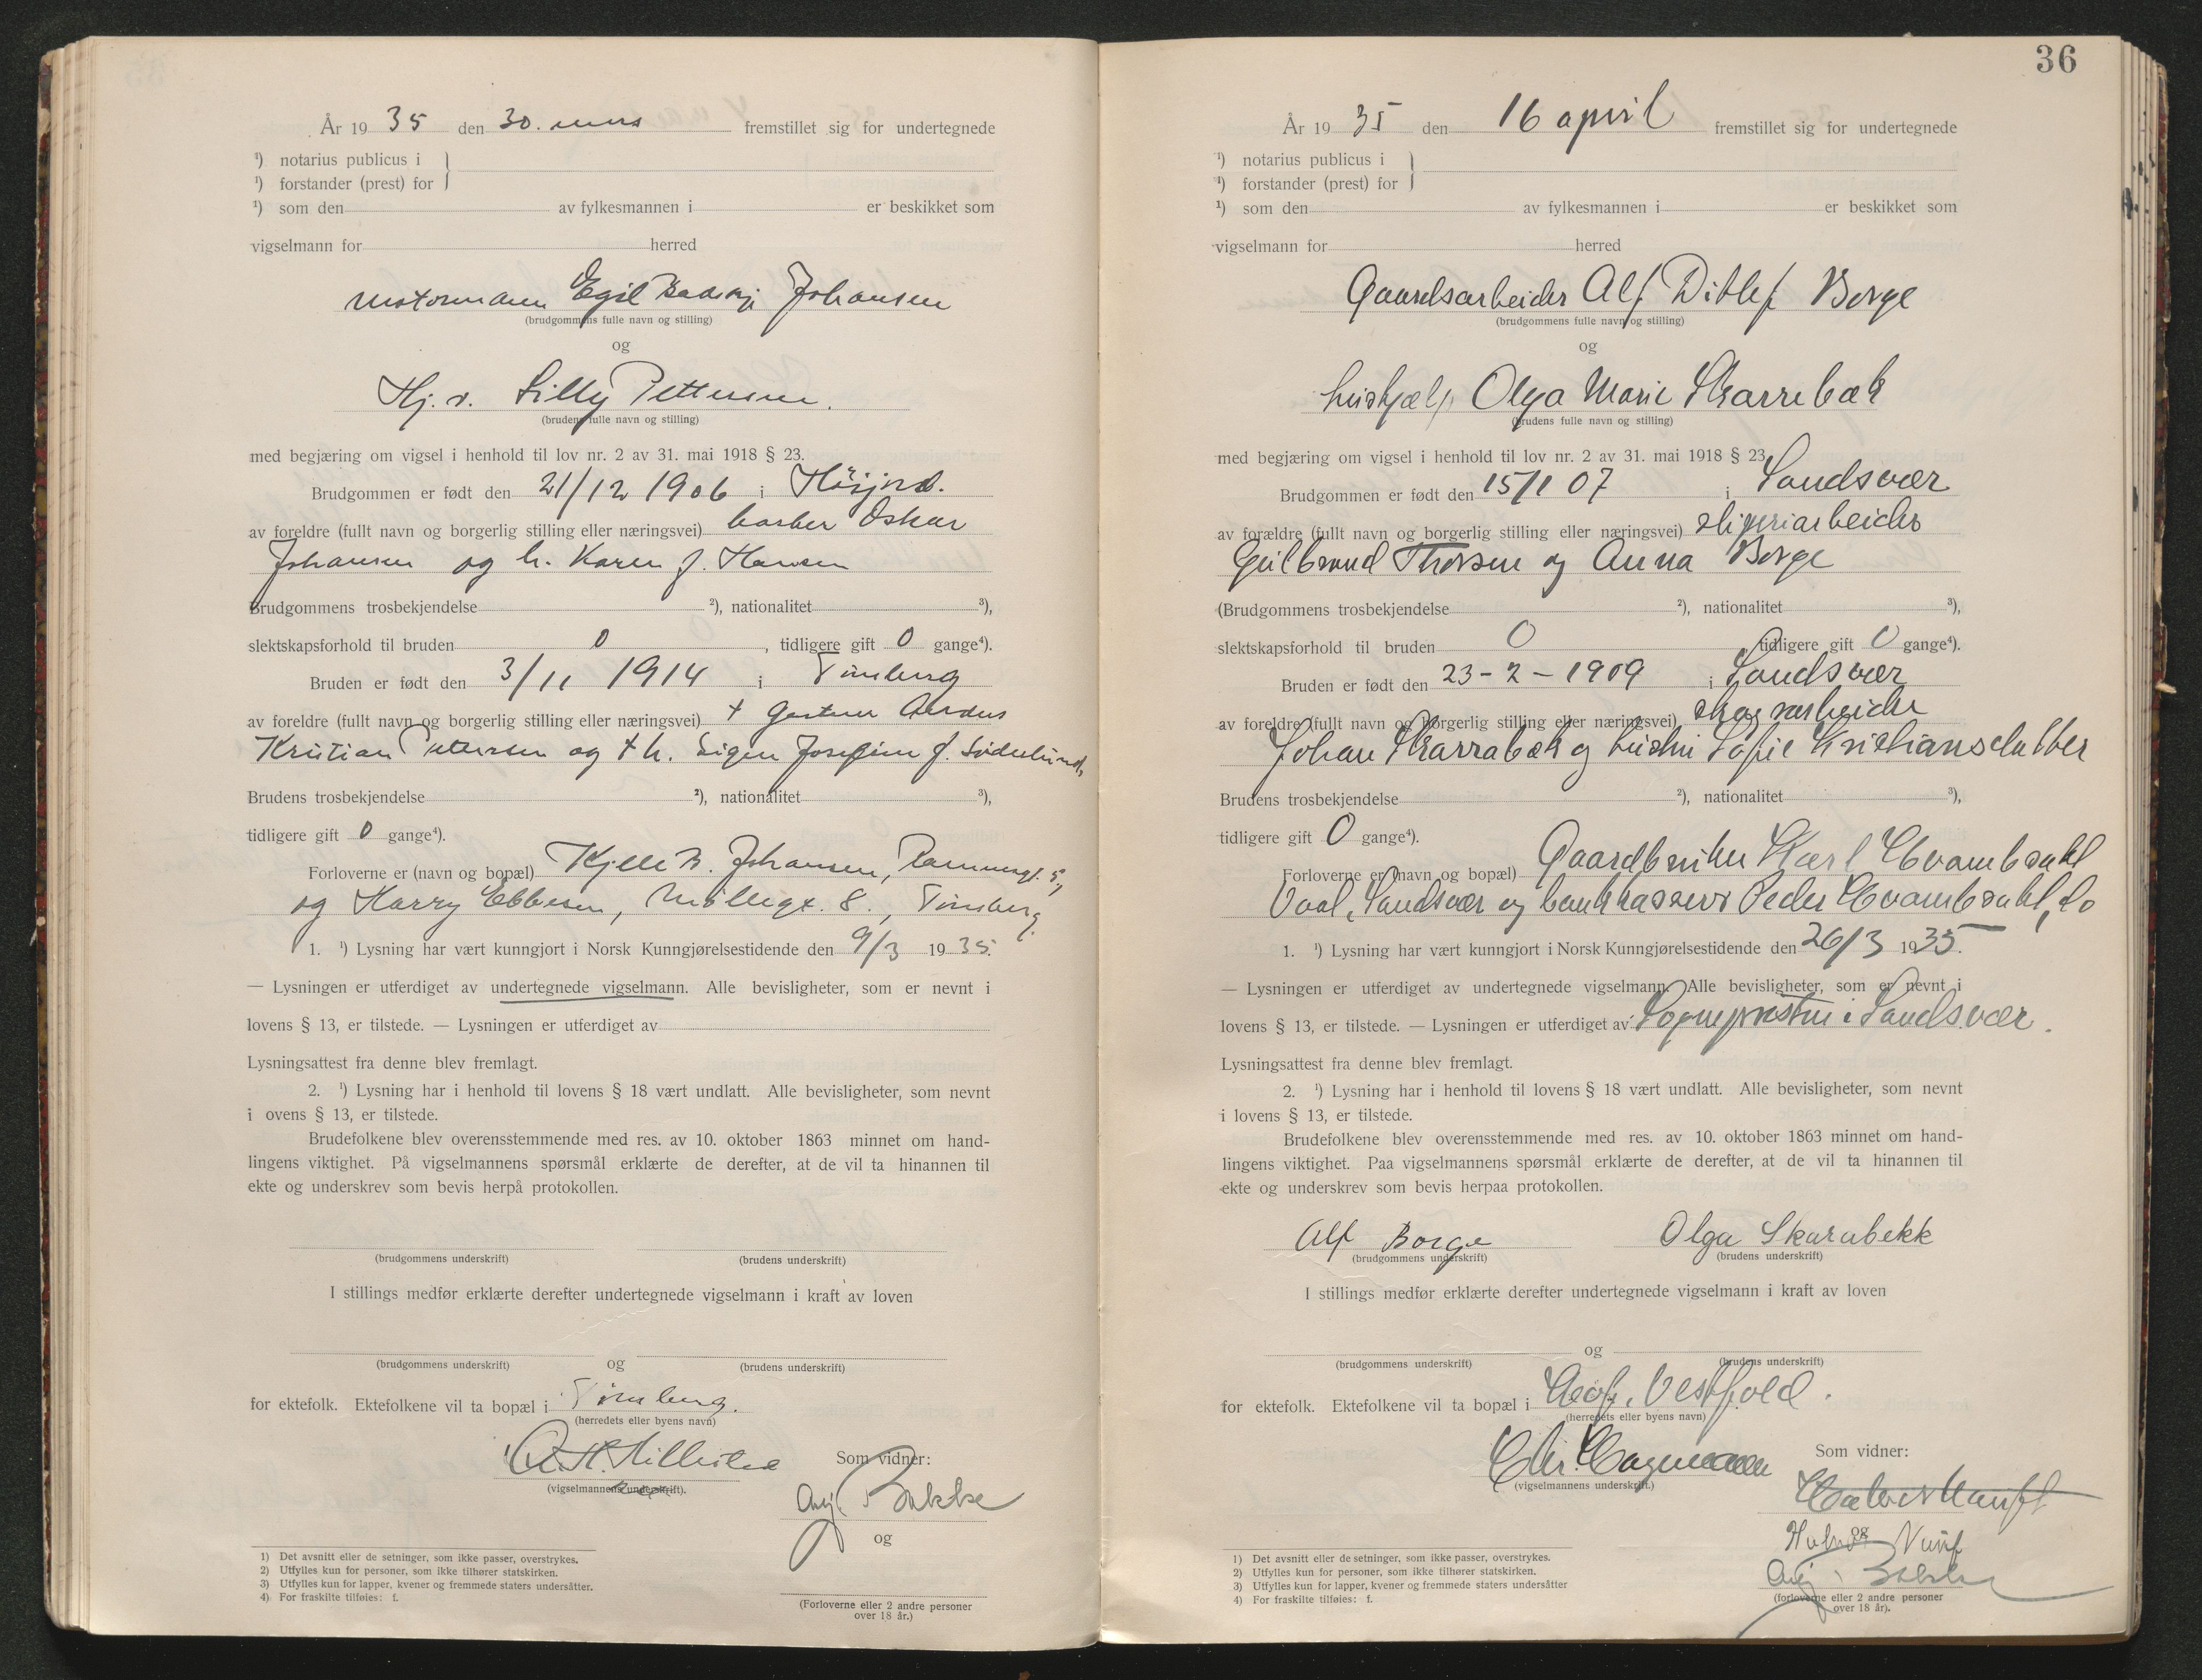 År 19 35 den 30. mars fremstillet sig for undertegnede
¹) notarius publicus i
¹) forstander (prest) for
¹) som den av fylkesmannen i er beskikket som
vigselmann for herred
motormann Egil Johansen
(brudgommens fulle navn og stilling)
og
Hj. v. Lilly Pettersen.
(brudens fulle navn og stilling)
med begjæring om vigsel i henhold til lov nr. 2 av 31. mai 1918 § 23.
Brudgommen er født den 21/12 1906 i
av foreldre (fullt navn og borgerlig stilling eller næringsvei) barber Oskar
Johansen og h. Karen f. Hansen
Brudgommens trosbekjendelse ²), nationalitet ³),
slektskapsforhold til bruden 0, tidligere gift 0 gange⁴).
Bruden er født den 3/11 1914 i Tønsberg
av foreldre (fullt navn og borgerlig stilling eller næringsvei) + gartner
Kristian Pettersen og + h. Signe Josefine f. Söderlund,
Brudens trosbekjendelse ²), nationalitet ³),
tidligere gift 0 gange⁴).
Forloverne er (navn og bopæl) Kjell Johansen, 5,
og Harry Ebbesen, Møllegt. 8., Tønsberg.
1. ¹) Lysning har vært kunngjort i Norsk Kunngjørelsestidende den 9/3 1935.
— Lysningen er utferdiget av undertegnede vigselmann. Alle bevisligheter, som er nevnt i
lovens § 13, er tilstede. — Lysningen er utferdiget av
Lysningsattest fra denne blev fremlagt.
2. ¹) Lysning har i henhold til lovens § 18 vært undlatt. Alle bevisligheter, som nevnt
i ovens § 13, er tilstede.
Brudefolkene blev overensstemmende med res. av 10. oktober 1863 minnet om hand-
lingens viktighet. På vigselmannens spørsmål erklærte de derefter, at de vil ta hinannen til
ekte og underskrev som bevis herpå protokollen.
(brudgommens underskrift) (brudens underskrift)
I stillings medfør erklærte derefter undertegnede vigselmann i kraft av loven
og
(brudgommens underskrift) (brudens underskrift)
for ektefolk. Ektefolkene vil ta bopæl i Tønsberg.
(herredets eller byens navn)
(vigselmannens underskrift).
Som vidner:
Bakke
og
(Forloverne eller 2 andre personer
over 18 år.)
1) Det avsnitt eller de setninger, som ikke passer, overstrykes.
2) Utfylles kun for personer, som ikke tilhører statskirken.
3) Utfylles kun for lapper, kvener og fremmede staters undersåtter.
4) For fraskilte tilføies: f.
36
År 19 35 den 16 april fremstillet sig for undertegnede
¹) notarius publicus i
¹) forstander (prest) for
¹) som den av fylkesmannen i er beskikket som
vigselmann for herred
Gaardsarbeider Alf Ditlef Borge
(brudgommens fulle navn og stilling)
og
hushjælp Olga Marie Skarrebæk
(brudens fulle navn og stilling)
med begjæring om vigsel i henhold til lov nr. 2 av 31. mai 1918 § 23.
Brudgommen er født den 15/1 07 i Sandsvær
av forældre (fullt navn og borgerlig stilling eller næringsvei) sliperiarbeider
Gulbrand Thorsen og Anna Borge
(Brudgommens trosbekjendelse ²), nationalitet ³),
slektskapsforhold til bruden 0 tidligere gift 0 gange⁴).
Bruden er født den 23-2-1909 i Sandsvær
av foreldre (fullt navn og borgerlig stilling eller næringsvei) skogsarbeider
Johan Skarrabæk og hustru Sofie Kristiansdatter
Brudens trosbekjendelse ²), nationalitet ³),
tidligere gift 0 gange⁴).
Forloverne er (navn og bopæl) Gaardbruker Karl Hvambsahl
Sandsvær og bankkasserer Peder Hvambsahl, do
1. ¹) Lysning har vært kunngjort i Norsk Kunngjørelsestidende den 26/3 1935.
— Lysningen er utferdiget av undertegnede vigselmann. Alle bevisligheter, som er nevnt i
lovens § 13, er tilstede. — Lysningen er utferdiget av Sognepresten i Sandsvær.
Lysningsattest fra denne blev fremlagt.
2. ¹) Lysning har i henhold til lovens § 18 vært undlatt. Alle bevisligheter, som nevnt
i lovens § 13, er tilstede.
Brudefolkene blev overensstemmende med res. av 10. oktober 1863 minnet om hand-
lingens viktighet. Paa vigselmannens spørsmål erklærte de derefter, at de vil ta hinannen til
ekte og underskrev som bevis herpaa protokollen.
Alf Borge Olga Skarabekk
(brudgommens underskrift) (brudens underskrift)
I stillings medfør erklærte derefter undertegnede vigselmann i kraft av loven
og
(brudgommens underskrift) (brudens underskrift)
for ektefolk. Ektefolkene vil ta bopæl i Hof, Vestfold.
(herredets eller byens navn)
Chr. Hagemann
(vigselmannens underskrift.)
Som vidner:
og
Bakke
(forloverne eller 2 andre personer
over 18 år).
1) Det avsnitt eller de setninger, som ikke passer, overstrykes.
2) Utfylles kun for personer, som ikke tilhører statskirken.
3) Utfylles kun for lapper, kvener og fremmede staters undersåtter
4) For fraskilte tilføies: f.